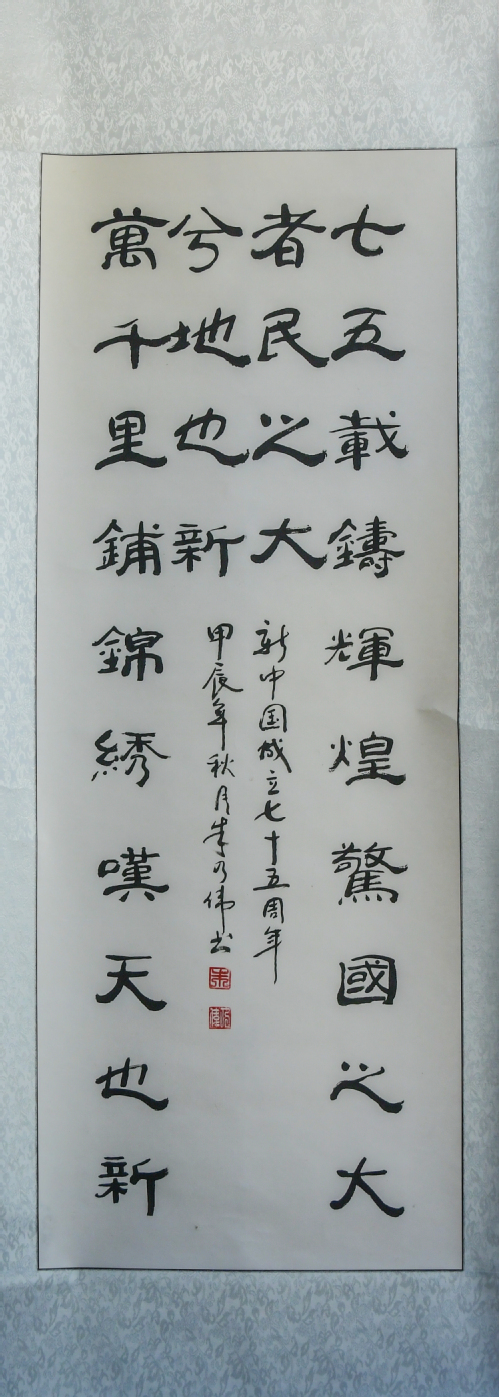 七五載鑄輝煌驚國之大
者民之大
萬千里鋪錦綉嘆天也新
兮地也新
新中国成立七十五周年
甲辰年秋月李乃伟书